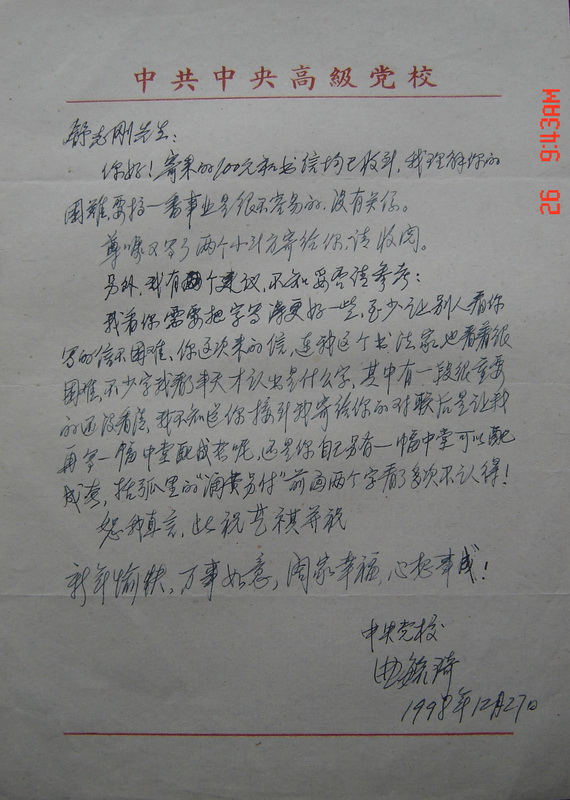 中共中央高級党校
舒志刚先生：
你好！寄来的200元和书信均已收到，我理解你的
困难，要搞一番事业是很不容易的，没有关系。
尊嘱又写了两个小斗方寄给你，请收阅。
另外，我有个建议，不知妥否请参考：
我看你需要把字写得更好一些，至少让别人看你
写的信不困难，你这次来的信，连我这个书法家也看着很
困难，不少字我看了半天才认出是什么字，其中有一段很重要
的还没看清，我不知道你接到我寄给你的对联后是让我
再写一幅中堂配成套呢，还是你自己另有一幅中堂可以配
成套，括弧里的"润费另付"前面两个字看了多次不认得！
恕我直言，此祝艺祺并祝
新年愉快，万事如意，阖家幸福，心想事成！
中央党校
曲毓琦
1998年12月27日